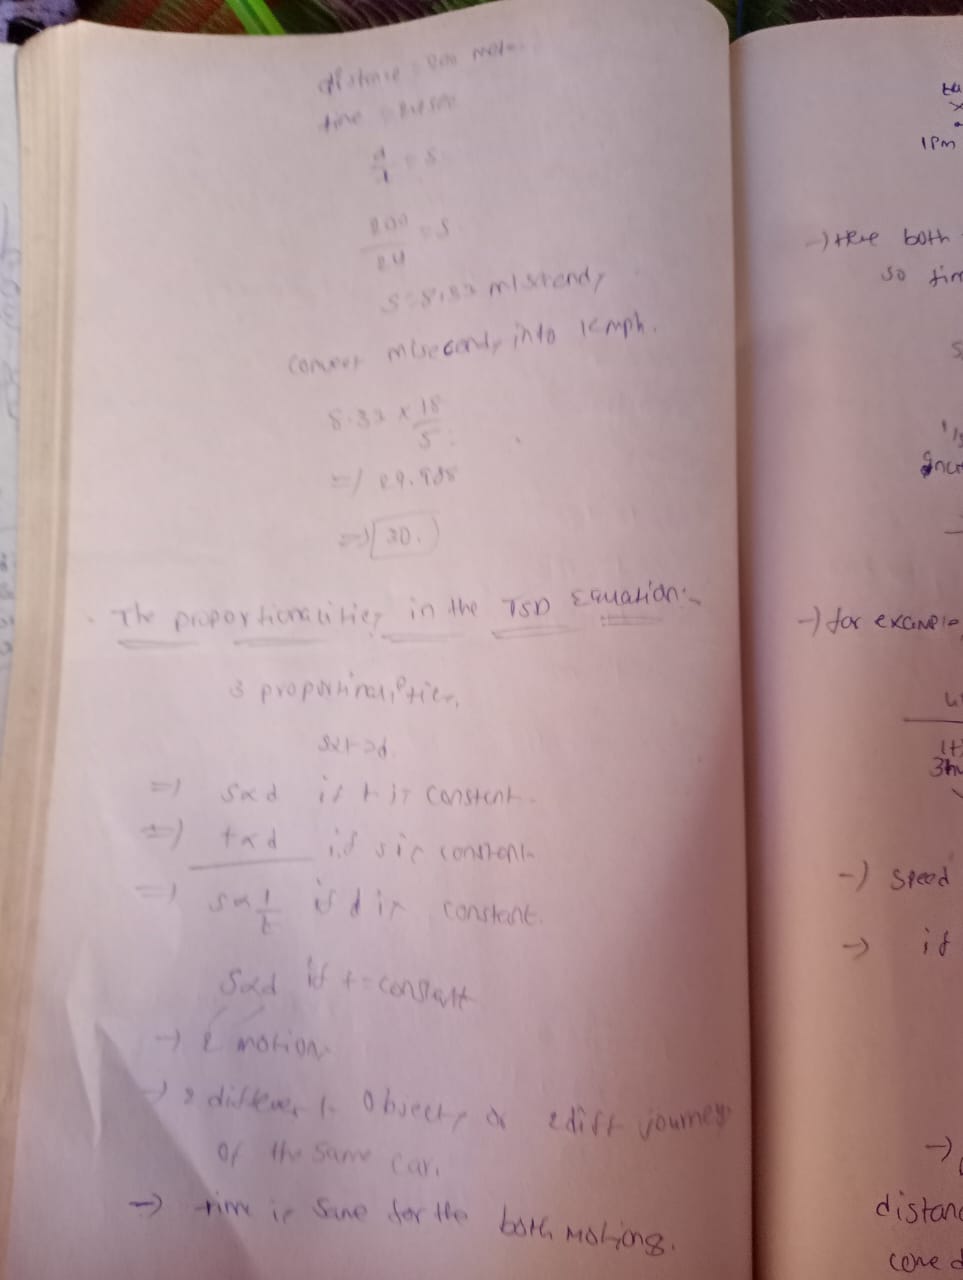 distance = 200 mete
time = 24 sec
d/t = s
200/24 = s
s = 8.33 m/seconds
convert m/seconds into kmph.
8.33 x 18/5
=) 29.988
=) 30.
The proportionalities in the TSD Equation:-
3 proportionalities,
sxt=d.
=) s∝d if t is constent.
=) t∝d if s is constent
=) s∝1/t if d is constant.
s∝d if t=constatt
→ 2 motion
→ 2 different objects or 2 diff journeys
of the same car.
→ time is same for the both motions.
1pm
both
so
→ for example
3h
-) speed
→ if
→
distan